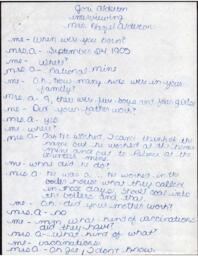 Jori Alderson
interviewing
Mrs. Hazel Alderson
me - When were you born?
mrs. a - September 24 1905
me - Where?
mrs. a - National Mine
me - Oh, how many kids were in your
family?
mrs. a - 9, they were five boys and four girls
me - Did your father work?
mrs. a - yes
me - where?
mrs. a - Oh he worked I can't think of the
name but he worked at the
mine and out to Palmer at the
mine.
me - what did he do?
mrs. a - he was a ... he worked in the
boiler house what they called
in those days. Shovel coal into
the boilers and that
me - Oh, did your mother work?
mrs. a - no
me - mmm, what kind of vaccinations
did they have?
mrs. a - what kind of what?
me - vaccinations
mrs. a - Oh gee, I don't know.